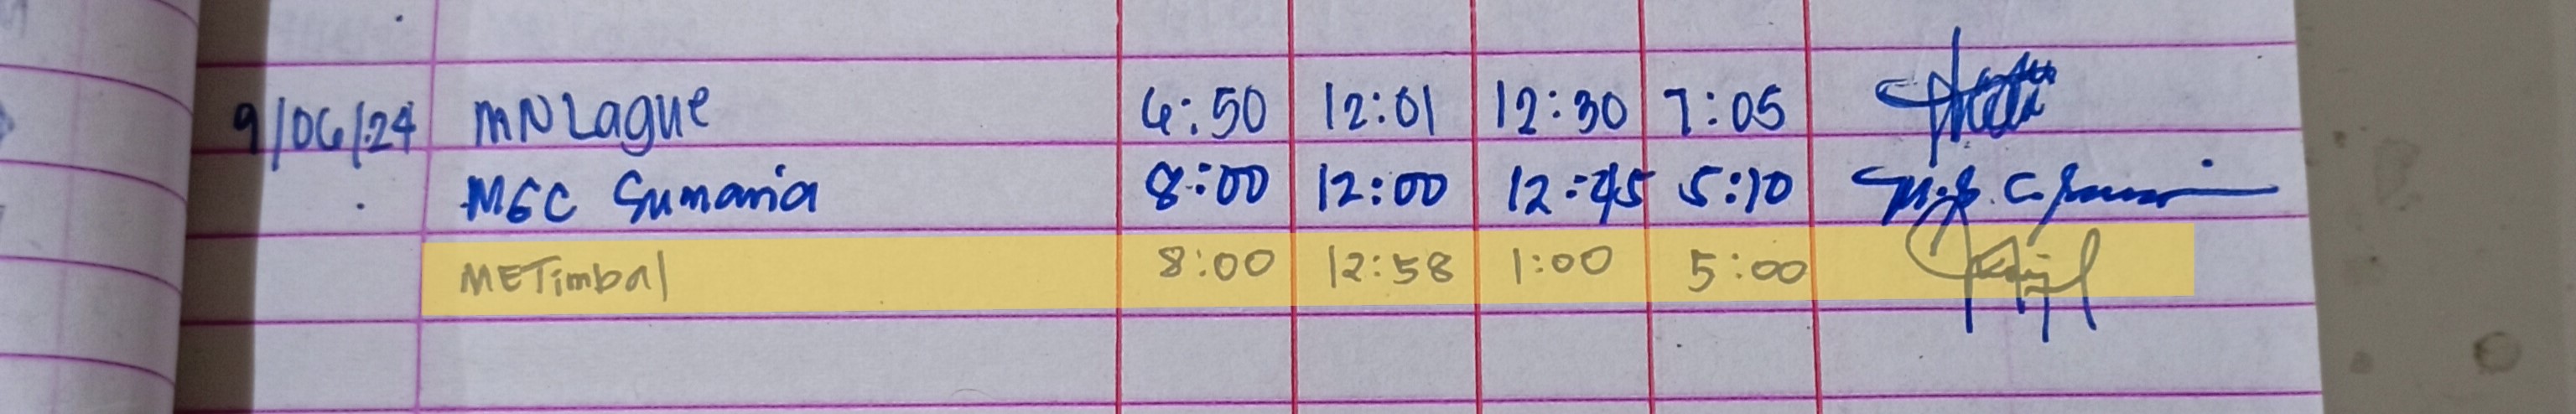 9/06/24 MNLague 6:50 12:01 12:30 7:05
MGC Sumania 8:00 12:00 12:45 5:10
METimbal 8:00 12:58 1:00 5:00